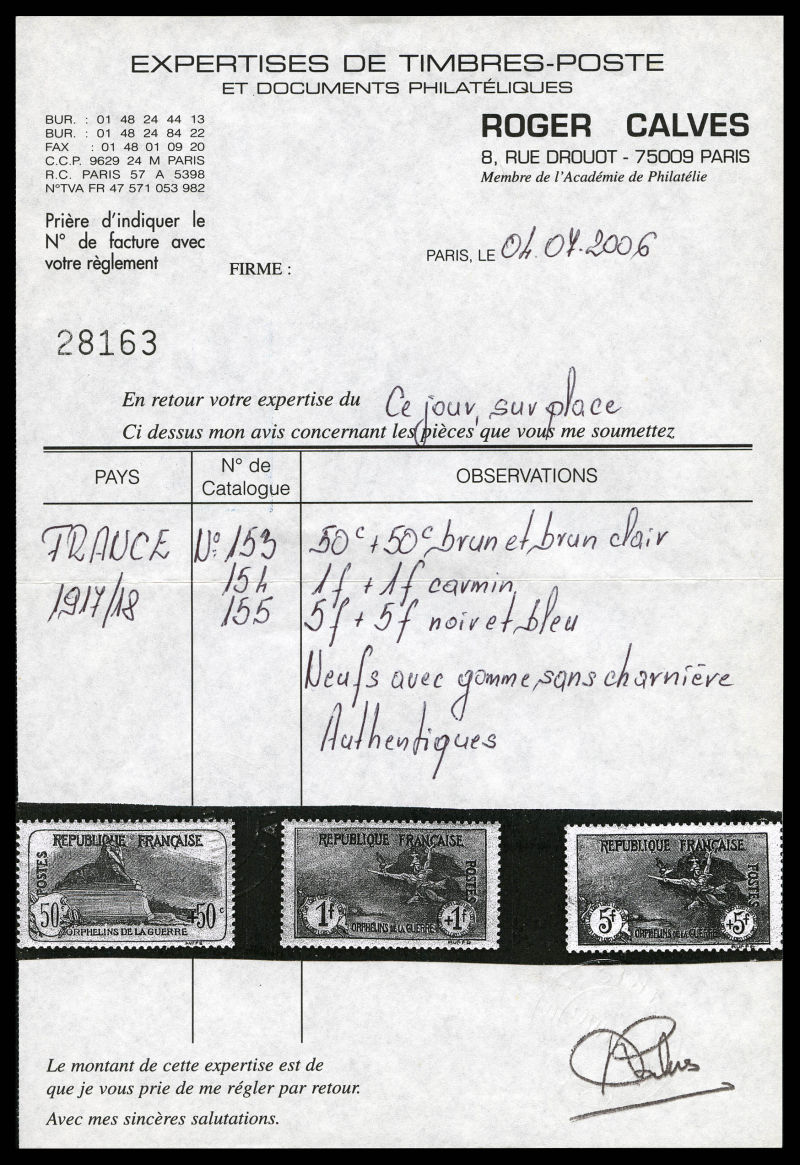 EXPERTISES DE TIMBRES-POSTE
ET DOCUMENTS PHILATÉLIQUES
BUR. : 01 48 24 44 13
BUR. : 01 48 24 84 22
FAX : 01 48 01 09 20
C.C.P. 9629 24 M PARIS
R.C. PARIS 57 A 5398
N°TVA FR 47 571 053 982
ROGER CALVES
8, RUE DROUOT - 75009 PARIS
Membre de l'Académie de Philatélie
Prière d'indiquer le
N° de facture avec
votre règlement
FIRME :
PARIS, LE 04.07.2006
28163
En retour votre expertise du Ce jour, sur place
Ci dessus mon avis concernant les pièces que vous me soumettez
PAYS N° de Catalogue OBSERVATIONS
FRANCE N°: 153 50c + 50c brun et brun clair
154 1f + 1f carmin
1917/18 155 5f + 5f noir et bleu
Neufs avec gomme, sans charnière
Authentiques
REPUBLIQUE FRANÇAISE
POSTES
50c +50c
ORPHELINS DE LA GUERRE
REPUBLIQUE FRANÇAISE
POSTES
1f +1f
ORPHELINS DE LA GUERRE
REPUBLIQUE FRANÇAISE
POSTES
5f +5f
ORPHELINS DE LA GUERRE
Calves
Le montant de cette expertise est de
que je vous prie de me régler par retour.
Avec mes sincères salutations.